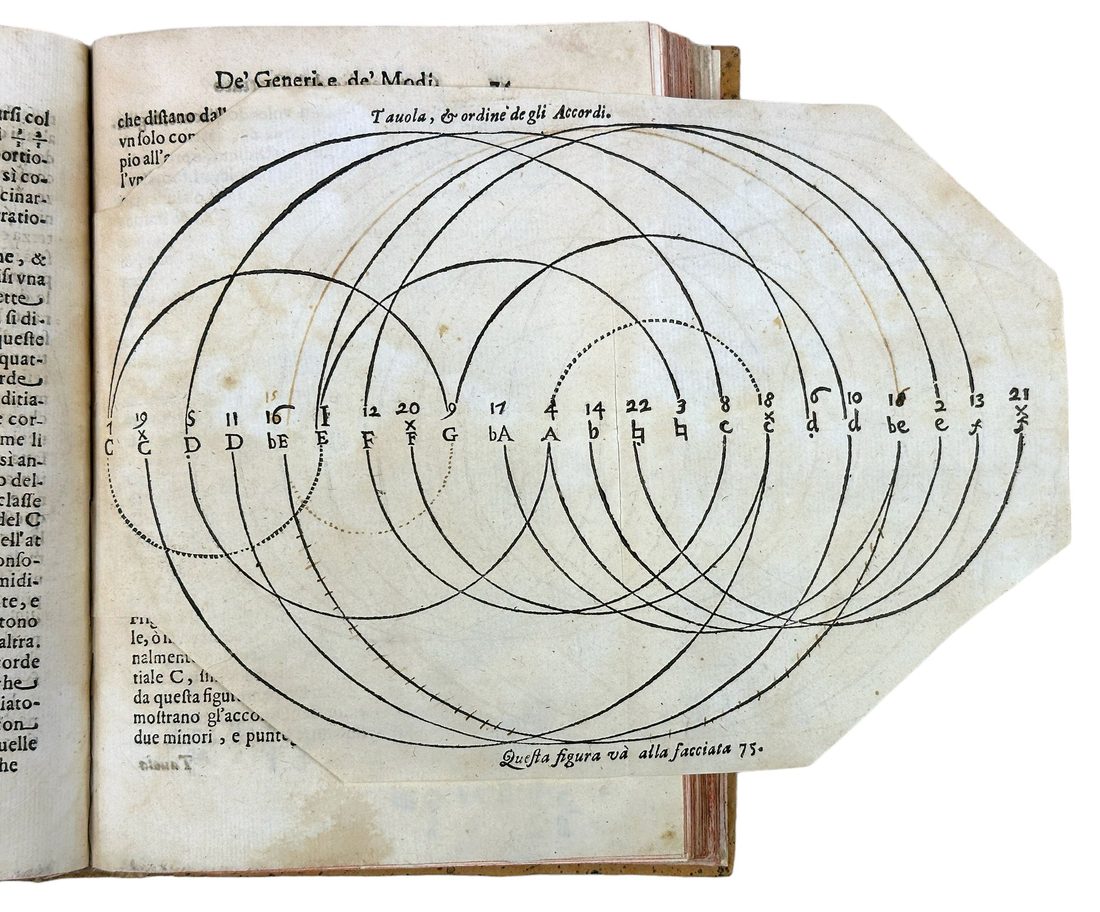 urſi col
ortio-
sì co-
cinar-
ratio-
ne, &
iſi vna
ette
ſi di-
queſte
quat-
rde
ditia-
e cor-
me li
sì an-
o del-
claſſe
del C
ell'at
onſo-
midi-
te, e
tono
altra.
corde
he
iato-
ſon
uelle
he
De' Generi, e de' Modi
che diſtano dall'
vn ſolo con
pio all'a
l'vn
Tauola, & ordine de gli Accordi.
15
7 19 5 11 16 1 12 20 9 17 4 14 22 3 8 18 6 10 16 2 13 21
C x C D D bE E F x F G bA A b ♮ ♮ c x c d d be e f x f
le, ò
nalment
tiale C, in
da queſta figur
moſtrano gl'acco
due minori, e punte
Tauola
Queſta figura và alla facciata 75.